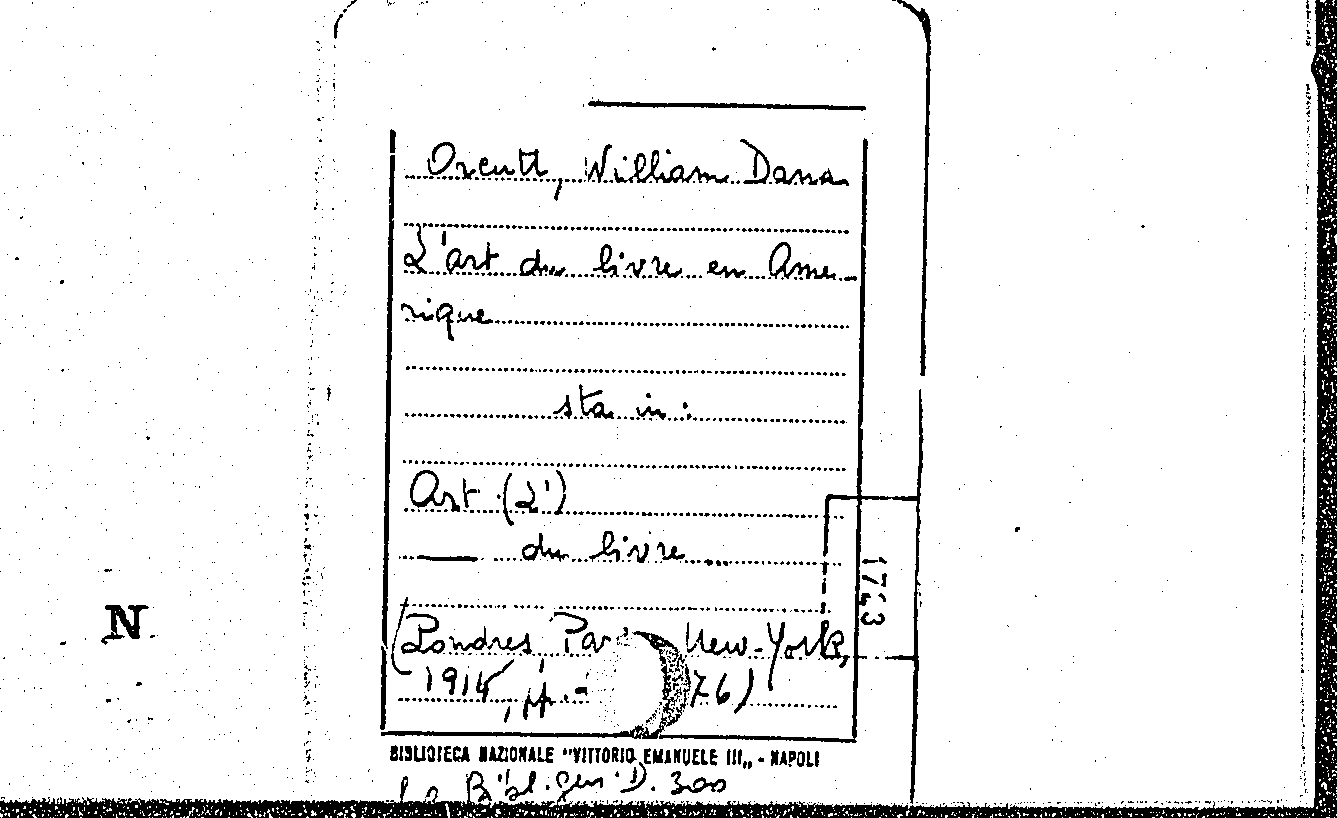 Orcutt, William Dana
L'art du livre en Ame-
rique
sta in:
Art (L')
—— du livre...
(Londres, Par New-York,
1914, 76)
1743
N
BIBLIOTECA NAZIONALE "VITTORIO EMANUELE III„ - NAPOLI
Bibl. gen. D. 300